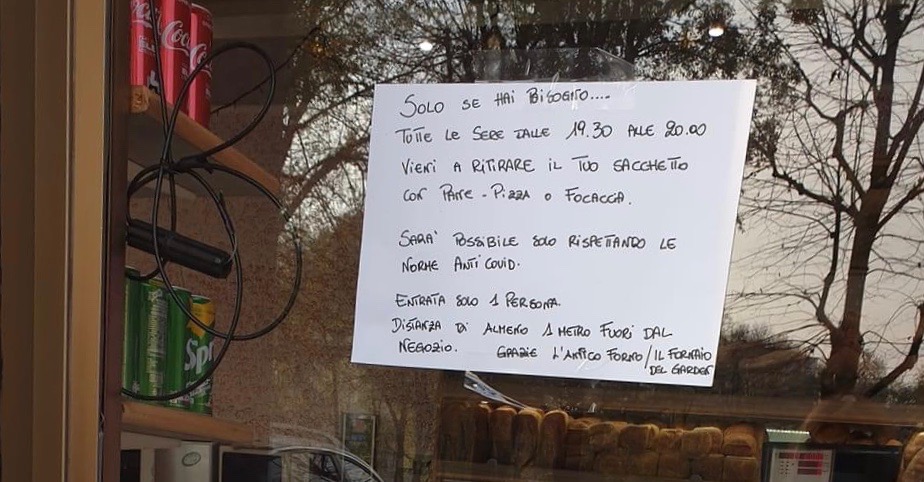 Coca
Coc
Spr
SOLO SE HAI BISOGNO....
TUTTE LE SERE DALLE 19.30 ALLE 20.00
VIENI A RITIRARE IL TUO SACCHETTO
CON PANE - PIZZA O FOCACCIA.
SARA' POSSIBILE SOLO RISPETTANDO LE
NORME ANTI COVID.
ENTRATA SOLO 1 PERSONA.
DISTANZA DI ALMENO 1 METRO FUORI DAL
NEGOZIO. GRAZIE L'ANTICO FORNO/IL FORNAIO
DEL GARDEN